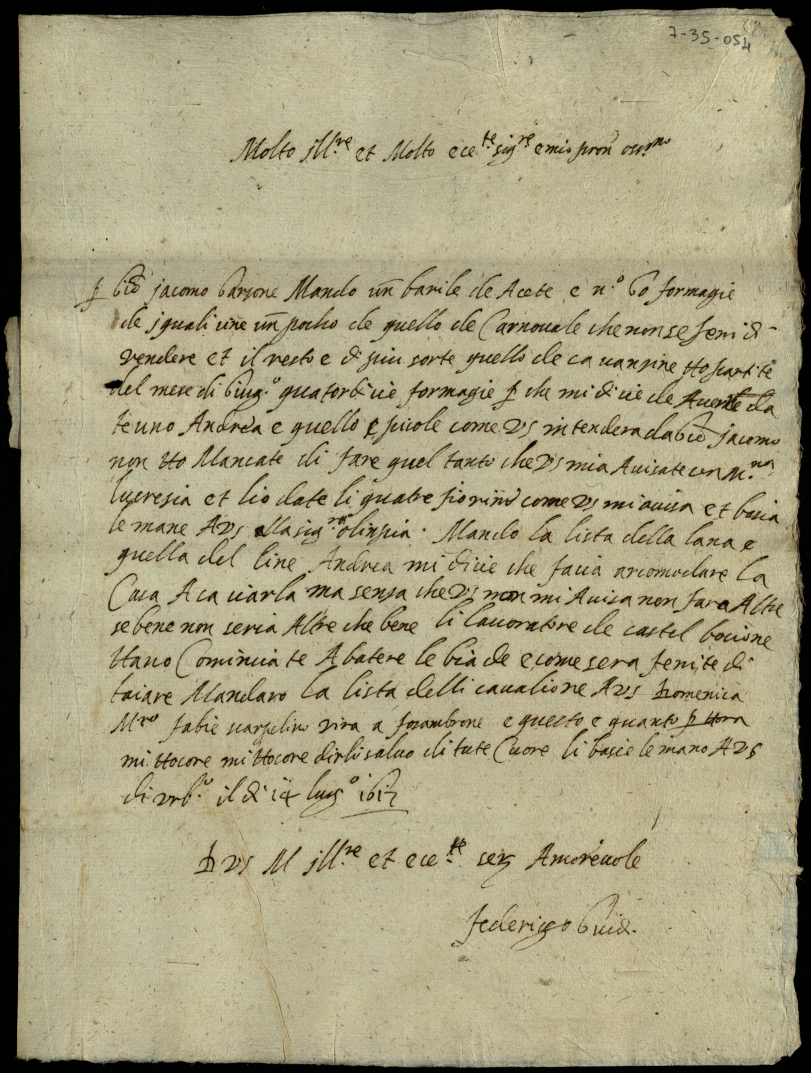 7-35-054
Molto ill.re et Molto ece.te sig.re e mio pron oss.mo
p Giō jacomo Garzone Mando un barile de Acete e n.o 60 formagie
de i quali vine un pocho de quello de Carnovale che non se fenì di
vendere et il resto e di più sorte quello de ca vanzine Ho partite
del mese di Giug.o quatordicie formagie p che mi dicie de Averle da
te uno Andrea e quello e picole come VS intenderà da Giō jacomo
non Ho Mancate di fare quel tanto che VS mi a Avisate con M.na
lucresia et li o date li quatre fiorini come VS mi avisa et bacia
le mane A VS e alla sig.ra olinpia. Mando la lista della lana e
quella del line Andrea mi dicie che facia arcomodare la
Casa A ca ciarla ma sensa che VS non mi Avisa non farò Altre
se bene non seria Altre che bene li lavoratore de castel bocione
Hano Comincia te A batere le biade e come sera fenite di
taiare Mandarò la lista delli cavalione A VS Domenica
M.ro fabie scarpelino virà a fosambrone e questo e quanto p Hora
mi Hocore mi Hocore dirli salvo di tute Cuore li bacie le mano A VS
di Urb.o il dì 14 lug.o 1617
D VS M ill.re et ece.te ser Amorevole
federigo Guid.